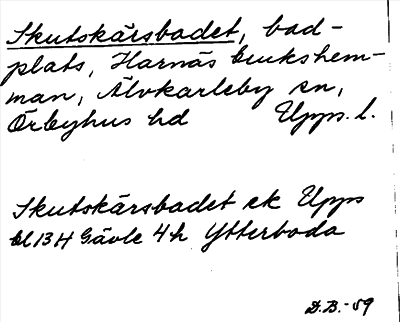 Skutskärsbadet, bad-
plats, Harnäs bruks hem-
man, Älvkarleby sn,
Örbyhus hd Upps. l.
Skutskärsbadet ek Upps
bl 13 H Gävle 4h Ytterboda
D.B.-59